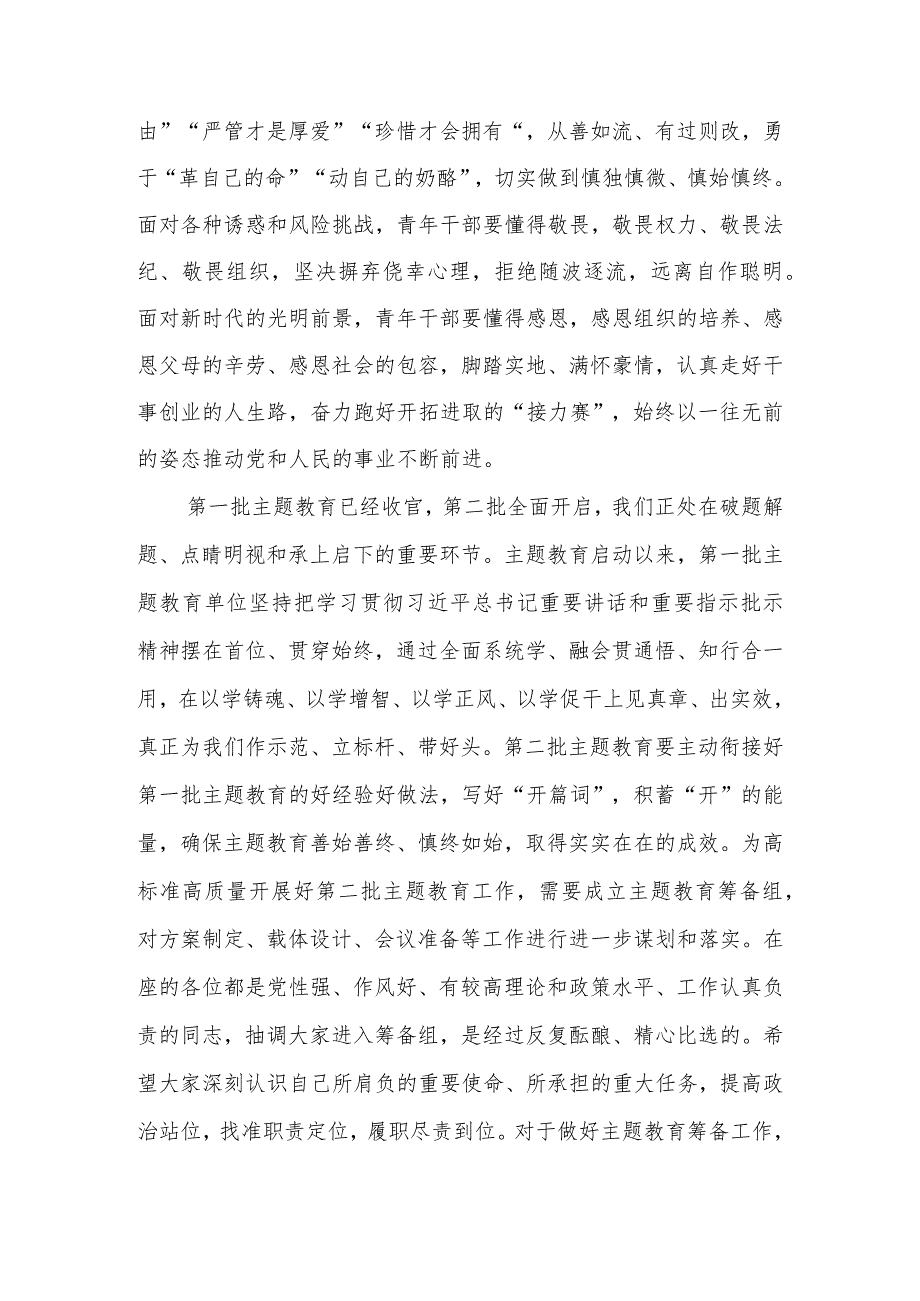 由”“严管才是厚爱”“珍惜才会拥有“，从善如流、有过则改，勇
于“革自己的命”“动自己的奶酪”，切实做到慎独慎微、慎始慎终。
面对各种诱惑和风险挑战，青年干部要懂得敬畏，敬畏权力、敬畏法
纪、敬畏组织，坚决摒弃侥幸心理，拒绝随波逐流，远离自作聪明。
面对新时代的光明前景，青年干部要懂得感恩，感恩组织的培养、感
恩父母的辛劳、感恩社会的包容，脚踏实地、满怀豪情，认真走好干
事创业的人生路，奋力跑好开拓进取的“接力赛”，始终以一往无前
的姿态推动党和人民的事业不断前进。
第一批主题教育已经收官，第二批全面开启，我们正处在破题解
题、点睛明视和承上启下的重要环节。主题教育启动以来，第一批主
题教育单位坚持把学习贯彻习近平总书记重要讲话和重要指示批示
精神摆在首位、贯穿始终，通过全面系统学、融会贯通悟、知行合一
用，在以学铸魂、以学增智、以学正风、以学促干上见真章、出实效，
真正为我们作示范、立标杆、带好头。第二批主题教育要主动衔接好
第一批主题教育的好经验好做法，写好“开篇词”，积蓄“开”的能
量，确保主题教育善始善终、慎终如始，取得实实在在的成效。为高
标准高质量开展好第二批主题教育工作，需要成立主题教育筹备组，
对方案制定、载体设计、会议准备等工作进行进一步谋划和落实。在
座的各位都是党性强、作风好、有较高理论和政策水平、工作认真负
责的同志，抽调大家进入筹备组，是经过反复酝酿、精心比选的。希
望大家深刻认识自己所肩负的重要使命、所承担的重大任务，提高政
治站位，找准职责定位，履职尽责到位。对于做好主题教育筹备工作，